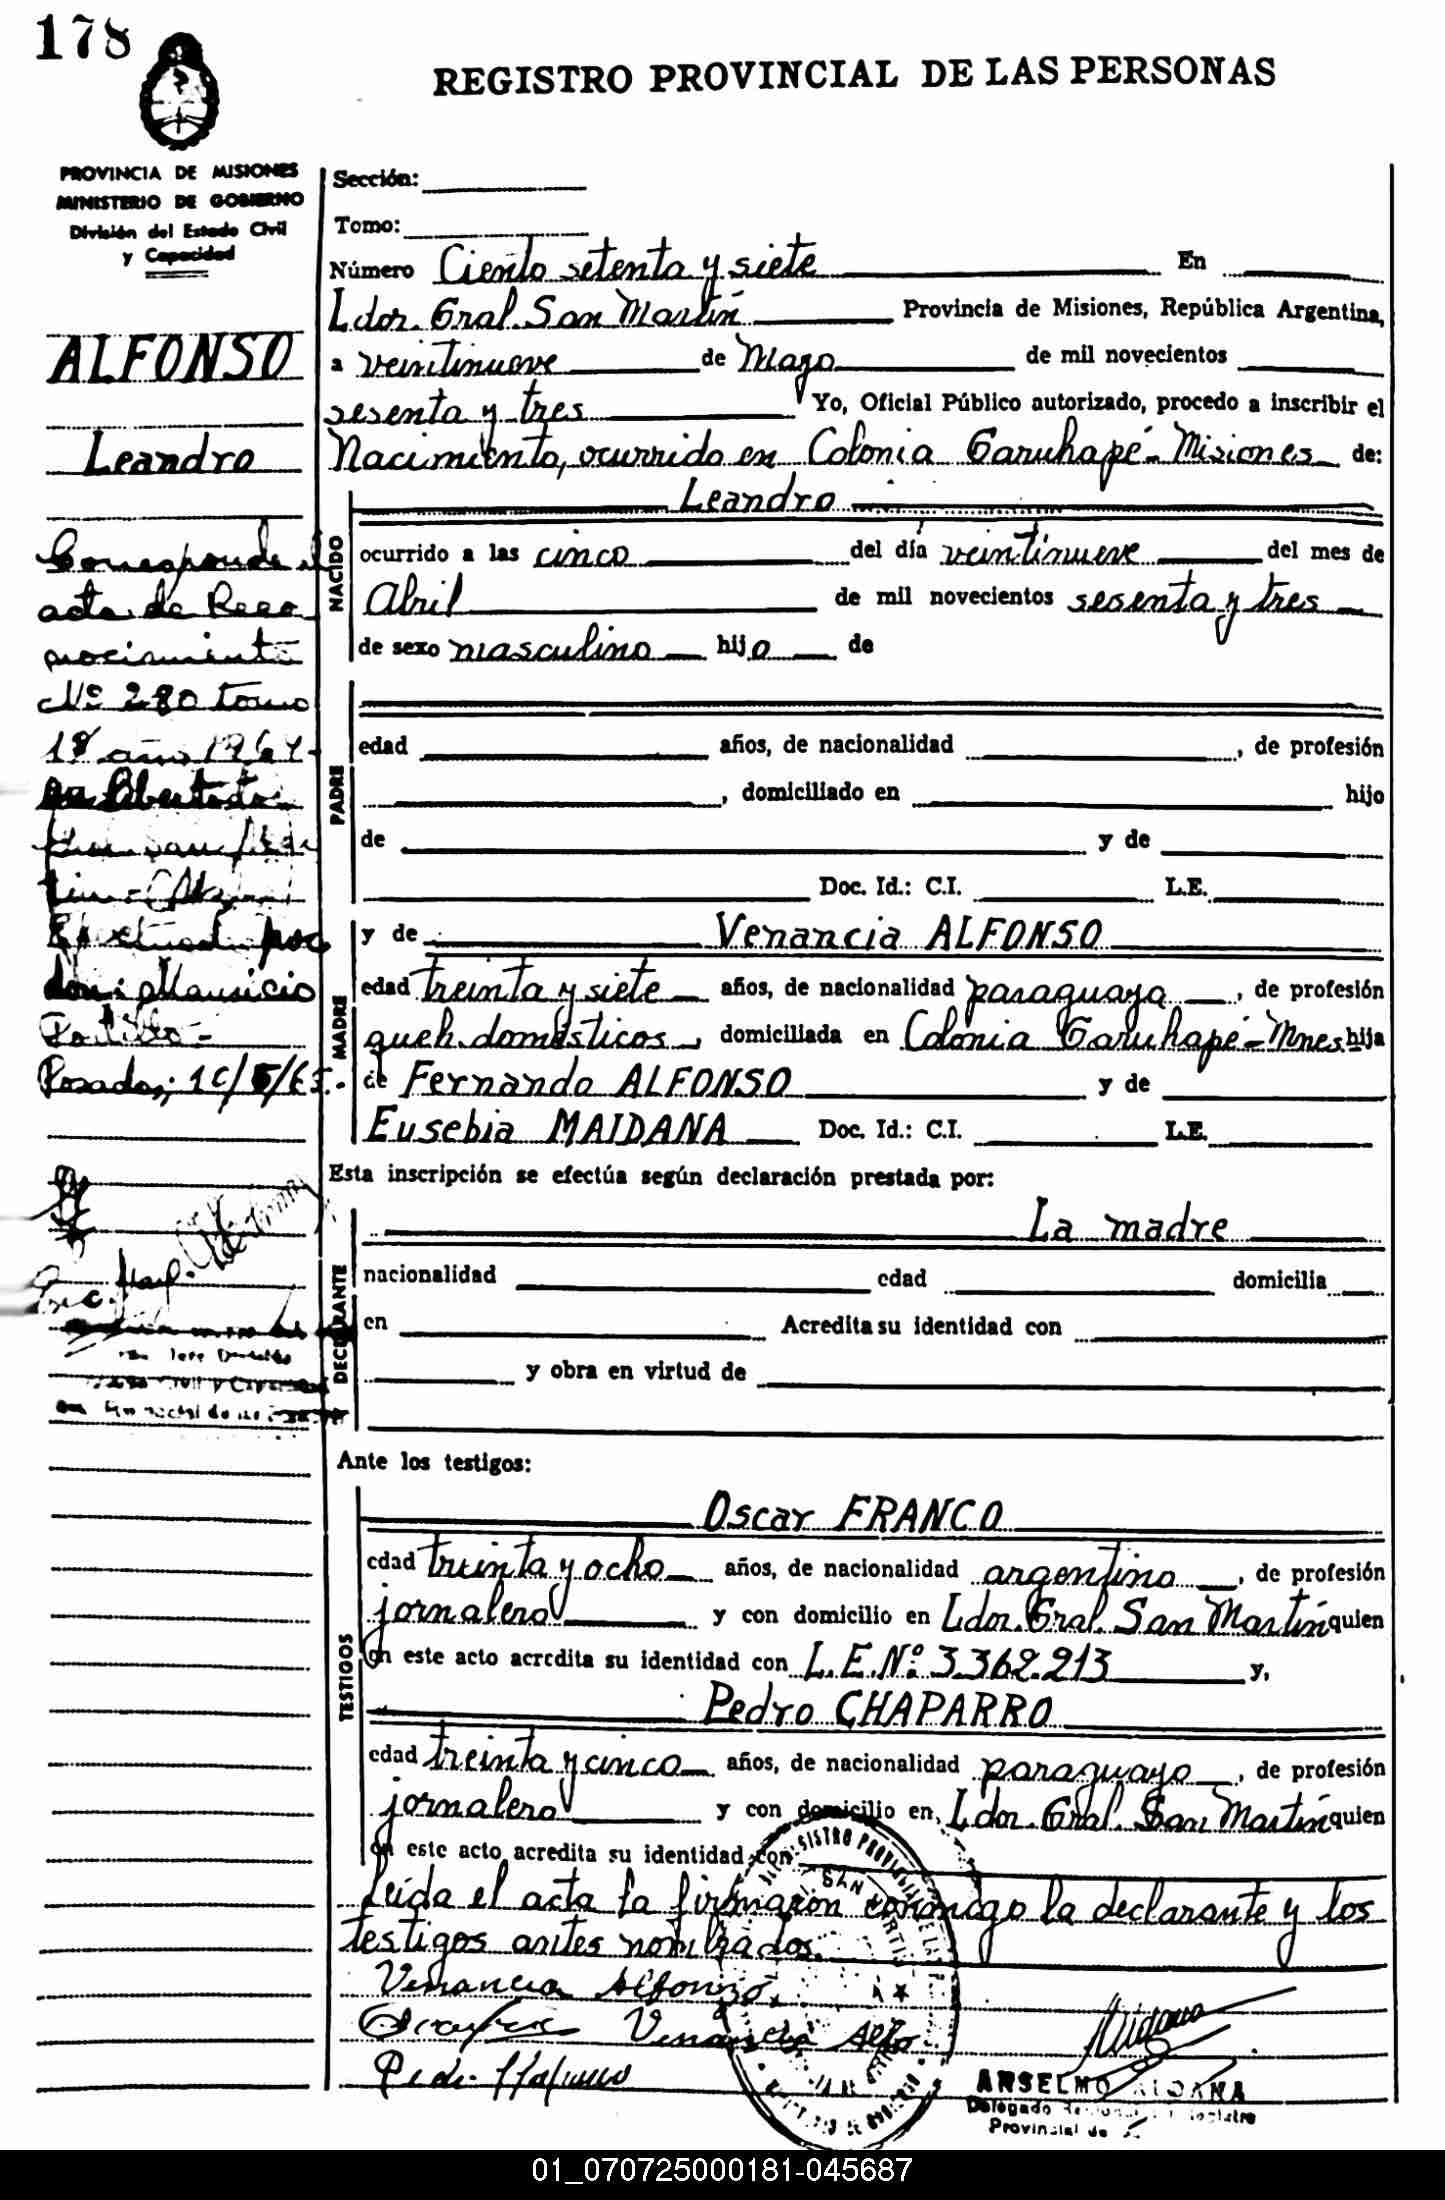 178
REGISTRO PROVINCIAL DE LAS PERSONAS
PROVINCIA DE MISIONES
MINISTERIO DE GOBIERNO
División del Estado Civil
y Capacidad
ALFONSO
Leandro
Corresponde el
acta de Reco
nocimiento
Nº 280 tomo
18 año 1964.
Efectuado por
don: Mauricio
Portillo -
Posadas,
Sección:
Tomo:
Número Ciento setenta y siete En
Ldor. Gral. San Martín Provincia de Misiones, República Argentina,
a veintinueve de Mayo de mil novecientos
sesenta y tres Yo, Oficial Público autorizado, procedo a inscribir el
Nacimiento, ocurrido en Colonia Garuhapé - Misiones de:
NACIDO
Leandro
ocurrido a las cinco del día veintinueve del mes de
Abril de mil novecientos sesenta y tres
de sexo masculino hijo de
PADRE
edad años, de nacionalidad , de profesión
, domiciliado en hijo
de y de
Doc. Id.: C.I. L.E.
MADRE
y de Venancia ALFONSO
edad treinta y siete años, de nacionalidad paraguaya , de profesión
queh. domésticos, domiciliada en Colonia Garuhapé - Mnes hija
de Fernando ALFONSO y de
Eusebia MAIDANA Doc. Id.: C.I. L.E.
Esta inscripción se efectúa según declaración prestada por:
DECLARANTE
La madre
nacionalidad edad domicilia
en Acredita su identidad con
y obra en virtud de
Ante los testigos:
TESTIGOS
Oscar FRANCO
edad treinta y ocho años, de nacionalidad argentino , de profesión
jornalero y con domicilio en Ldor. Gral. San Martín quien
en este acto acredita su identidad con L.E. Nº 3.362.213 y,
Pedro CHAPARRO
edad treinta y cinco años, de nacionalidad paraguayo , de profesión
jornalero y con domicilio en Ldor. Gral. San Martín quien
en este acto acredita su identidad con
Leída el acta la firmaron conmigo la declarante y los
testigos antes nombrados.
Venancia Alfonzo.
Venancia Alfo
ANSELMO ALDANA
Delegado
Provincial de
01_070725000181-045687